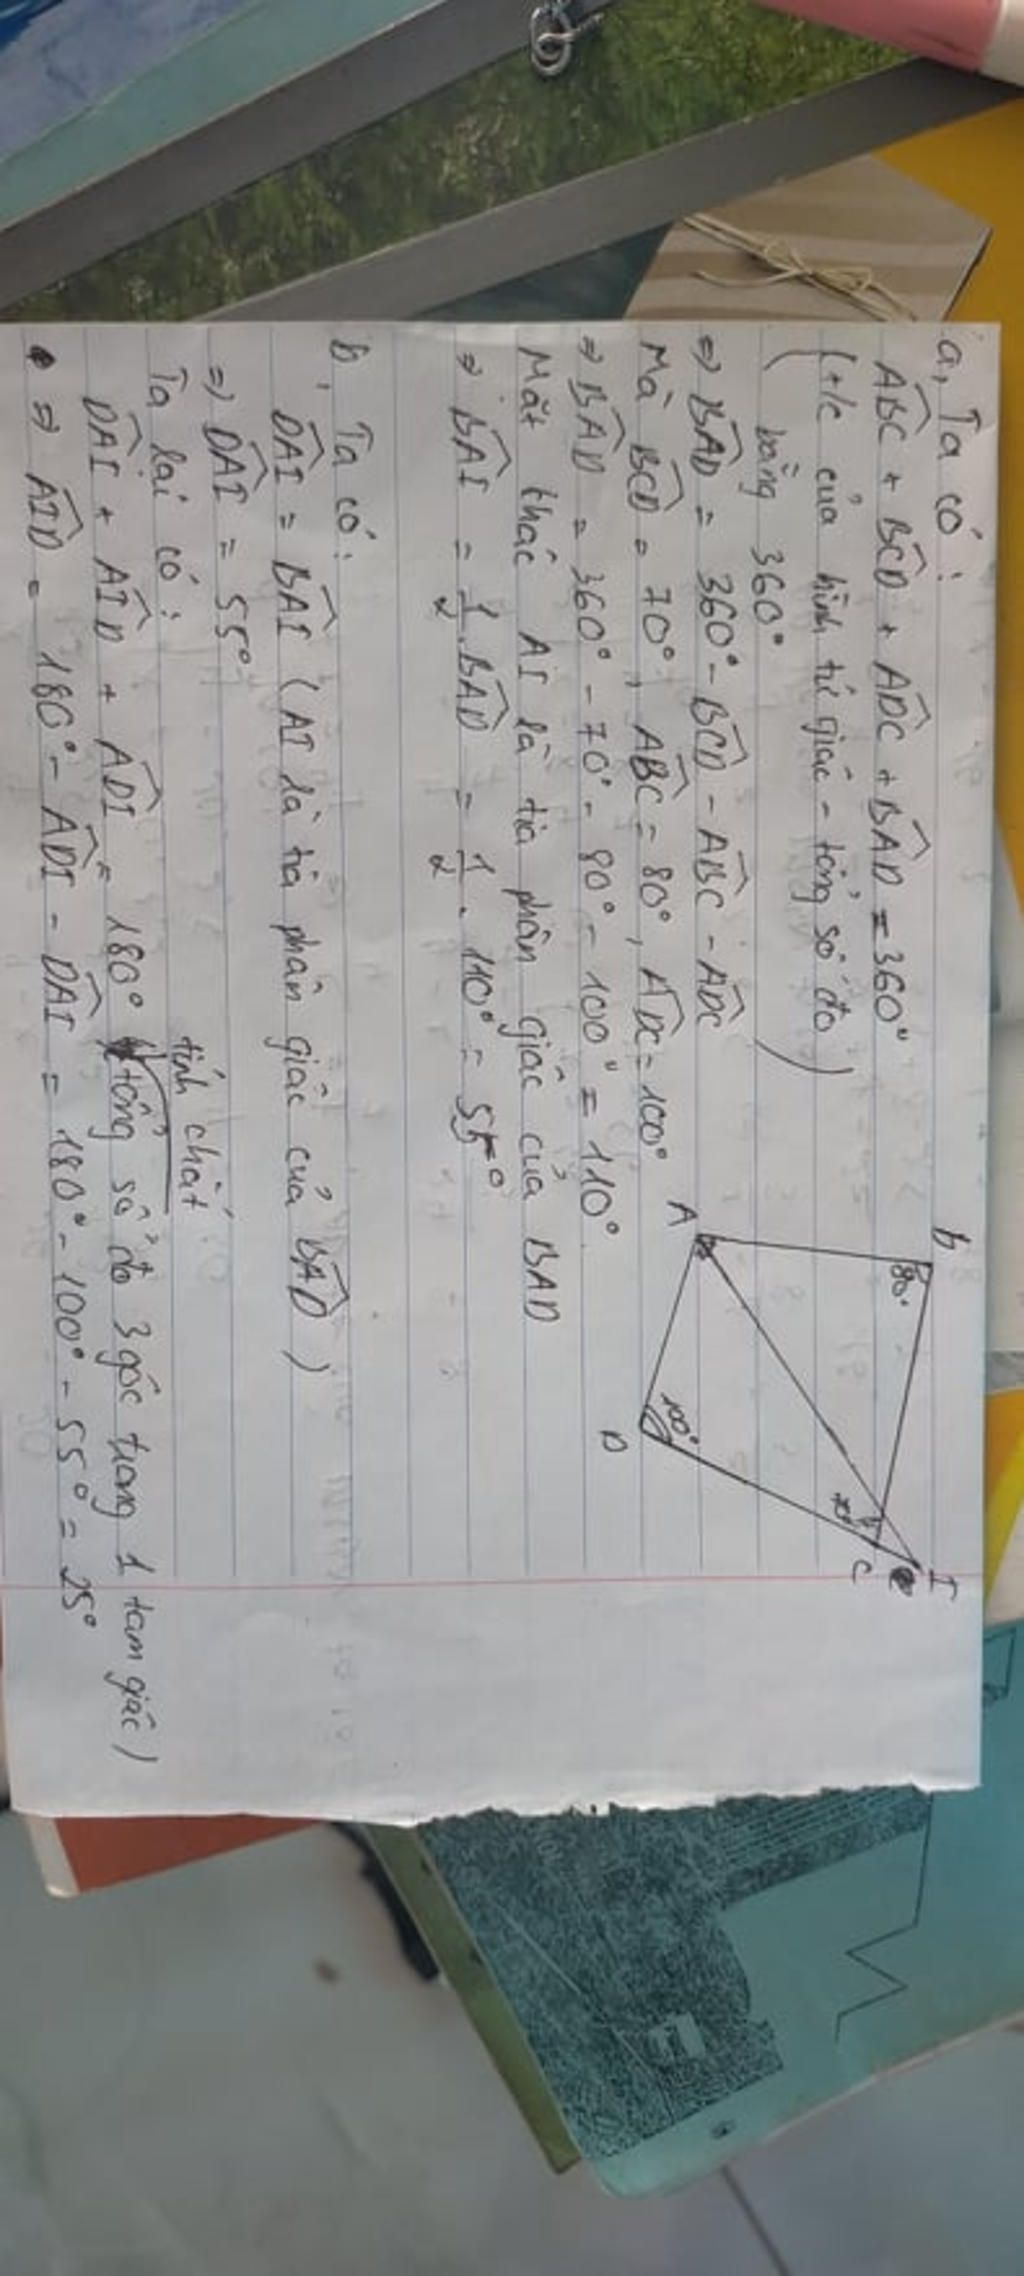 a, Ta có:
ABC + BCD + ADC + BAD = 360°
(t/c của hình tứ giác - tổng số đo
bằng 360°)
⇒ BAD = 360° - BCD - ABC - ADC
Mà BCD = 70°, ABC = 80°, ADC = 100°
⇒ BAD = 360° - 70° - 80° - 100° = 110°
Mặt khác AI là tia phân giác của BAD
⇒ BAI = 1/2 . BAD = 1/2 . 110° = 55°
b, Ta có:
DAI = BAI (AI là tia phân giác của BAD)
⇒ DAI = 55°
Ta lại có:
tính chất
DAI + AID + ADI = 180° (tổng số đo 3 góc trong 1 tam giác)
⇒ AID = 180° - ADI - DAI = 180° - 100° - 55° = 25°
B
80°
I
A
70°
C
100°
D